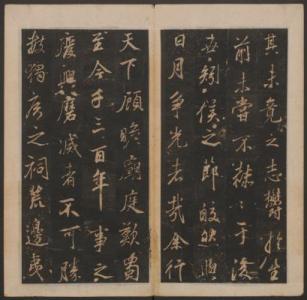 其未竟之志欝於生
前未嘗不凜〻于後
世矧侯之節皎然與
日月爭光者哉余行
天下顧瞻廟庭歎蜀
至今千三百年事之
廢興磨滅者不可勝
數獨侯之祠荒邊夷